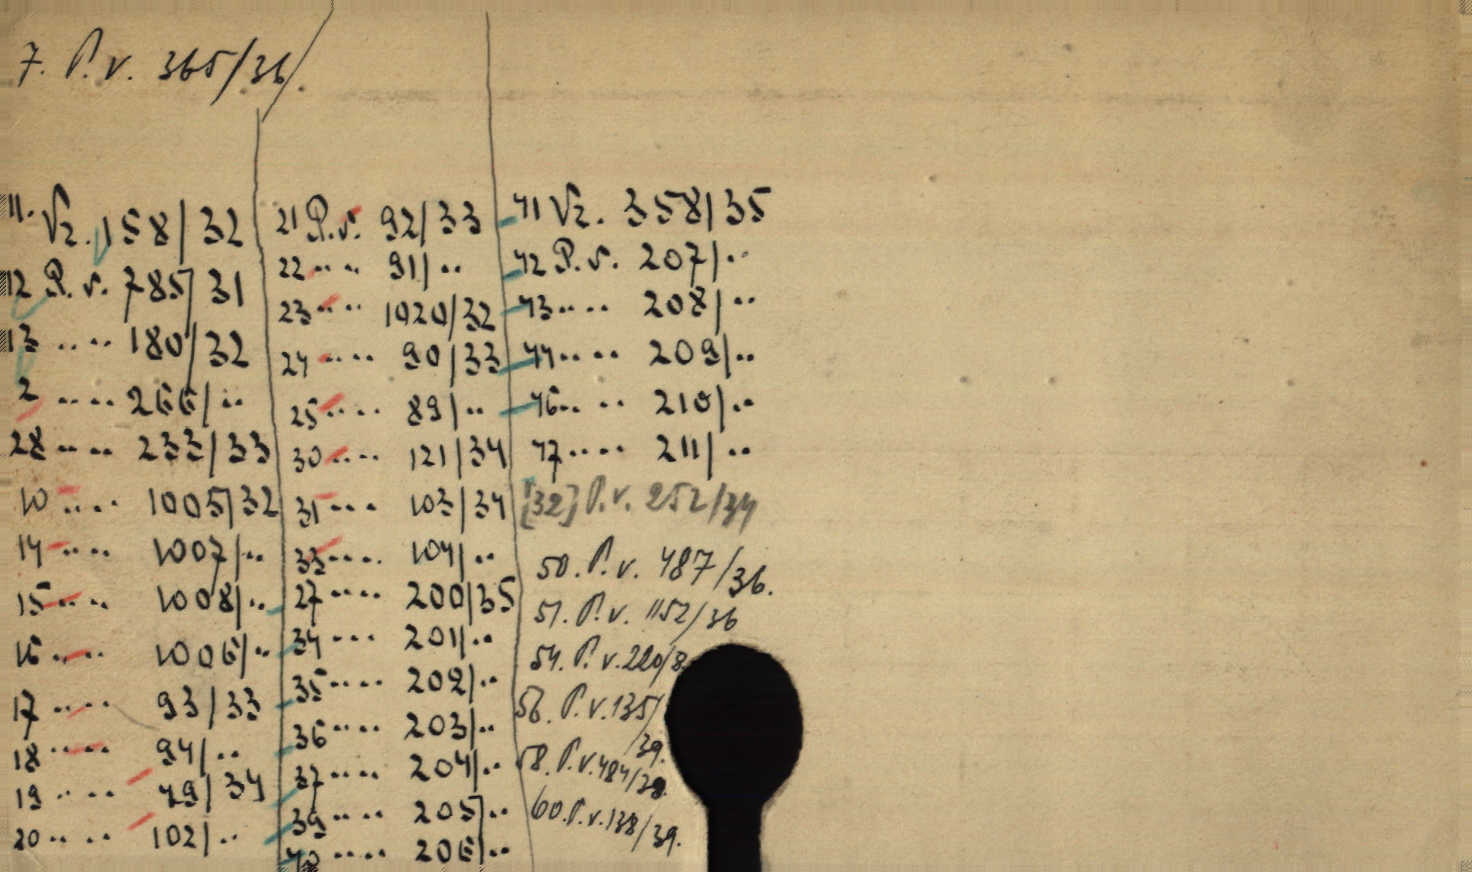 7. P.v. 365/36.
11. Vz. 158/32
12 P.v. 785/31
13 .. .. 180/32
2 .. .. 266/..
28 .. .. 233/33
10 .. .. 1005/32
14 .. .. 1007/..
15 .. .. 1008/..
16 .. .. 1006/..
17 .. .. 93/33
18 .. .. 94/..
19 .. .. 49/34
20 .. .. 102/..
21 P.v. 92/33
22 .. .. 91/..
23 .. .. 1020/32
24 .. .. 90/33
25 .. .. 89/..
30 .. .. 121/34
31 .. .. 103/34
33 .. .. 104/..
27 .. .. 200/35
34 .. .. 201/..
35 .. .. 202/..
36 .. .. 203/..
37 .. .. 204/..
39 .. .. 205/..
40 .. .. 206/..
41 Vz. 358/35
42 P.v. 207/..
43 .. .. 208/..
44 .. .. 209/..
46 .. .. 210/..
47 .. .. 211/..
[32] P.v. 252/34
50. P.v. 487/36.
51. P.v. 1152/36
54. P.v. 220/8
56. P.v. 135/
39.
58. P.v. 484/39.
60. P.v. 138/39.